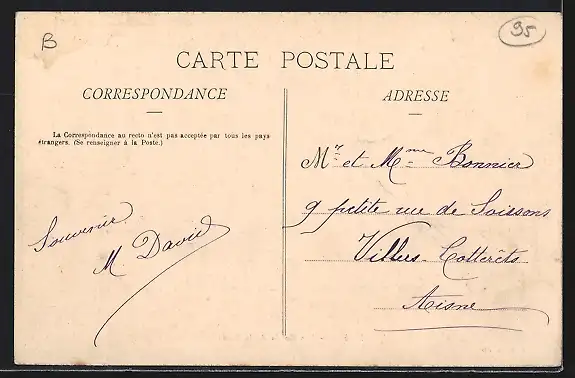 B
95
CARTE POSTALE
CORRESPONDANCE
ADRESSE
La Correspondance au recto n'est pas acceptée par tous les pays
étrangers. (Se renseigner à la Poste.)
Mr et Mme Bonnier
9 petite rue de Soissons
Villers-Cotterêts
Aisne
Souvenir
M. David